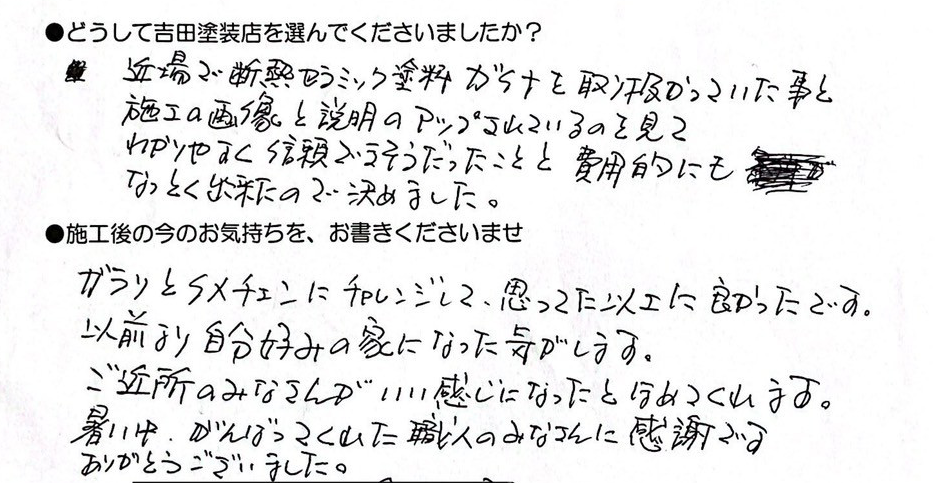 ●どうして吉田塗装店を選んでくださいましたか?
近場で断熱セラミック塗料ガイナを取り扱かっていた事と
施工の画像と説明のアップされているのを見て
わかりやすく信頼できそうだったことと費用的にも
なっとく出来たので決めました。
●施工後の今のお気持ちを、お書きくださいませ
ガラリとイメチェンにチャレンジして、思ってた以上に良かったです。
以前より自分好みの家になった気がします。
ご近所のみなさんがいい感じになったとほめてくれます。
暑い中、がんばってくれた職人のみなさんに感謝です
ありがとうございました。